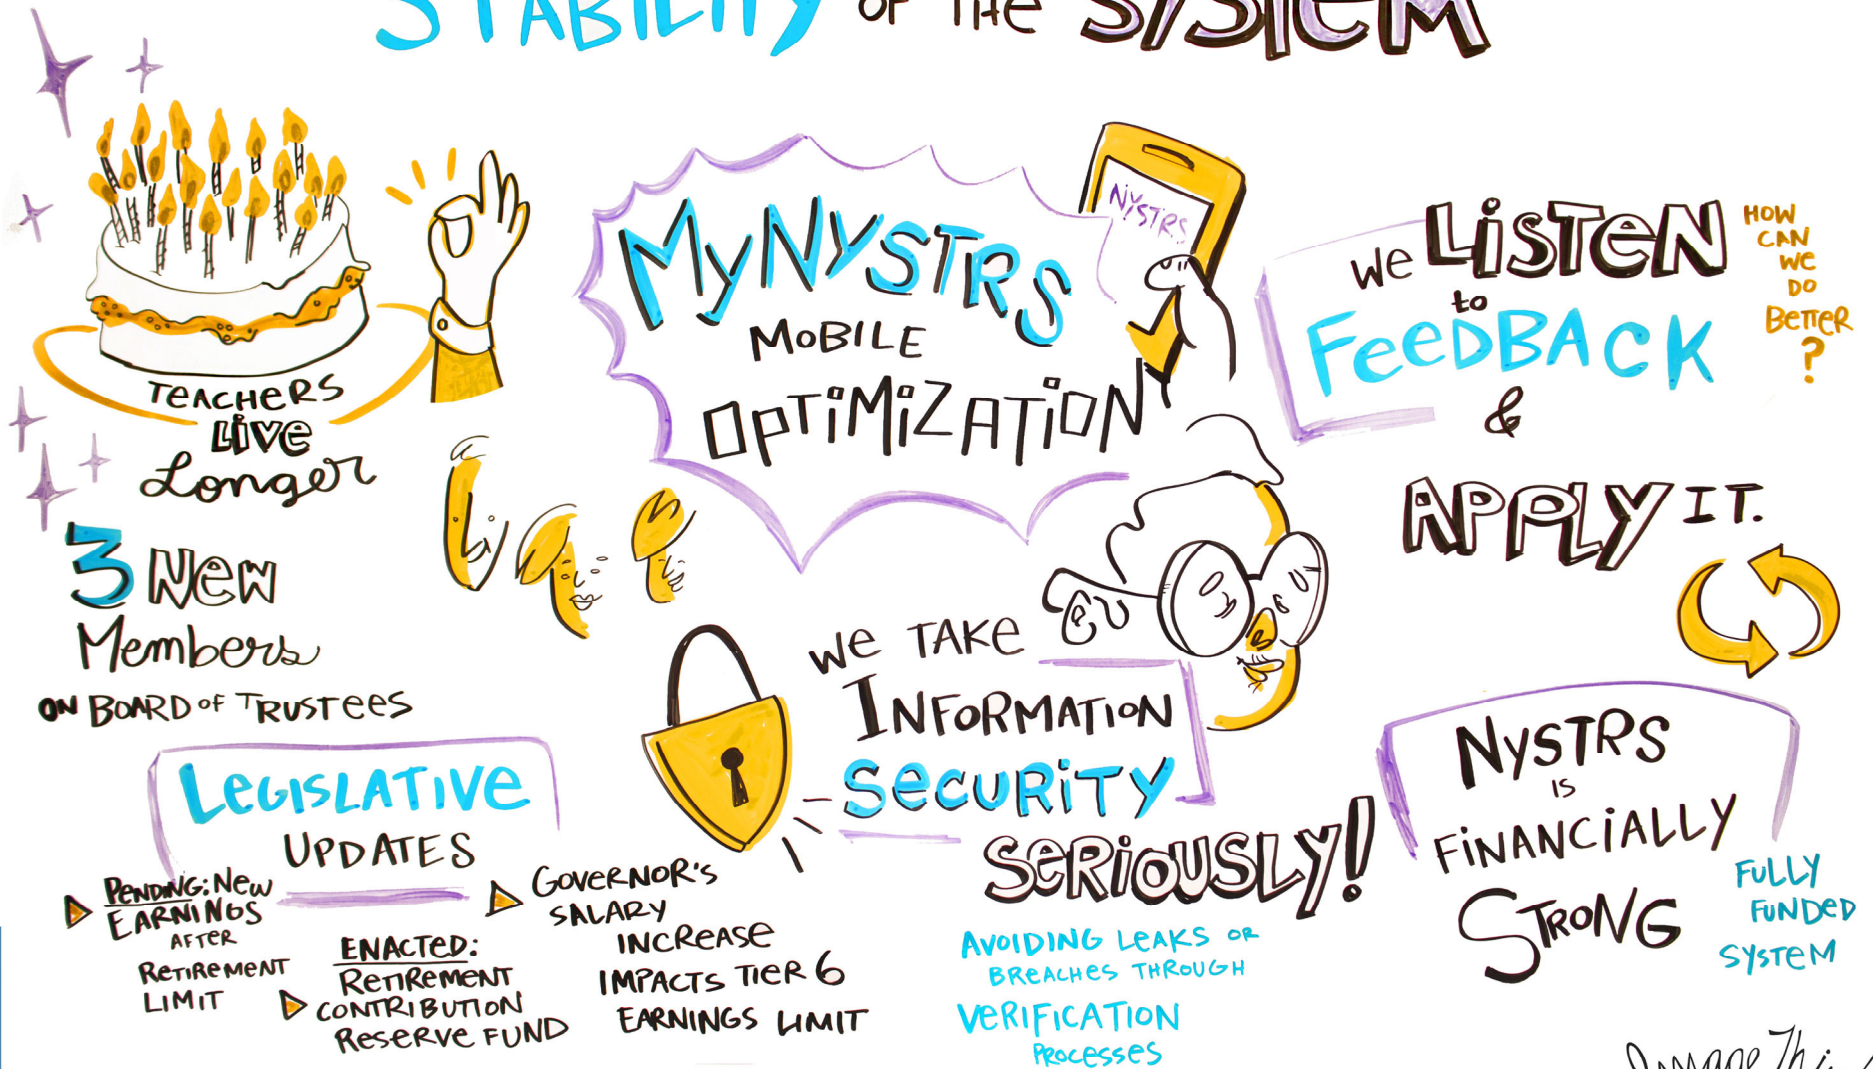 STABILITY OF THE SYSTEM
TEACHERS
LIVE
Longer
3 New
Members
ON BOARD OF TRUSTEES
LEGISLATIVE
UPDATES
PENDING: NEW
EARNINGS
AFTER
RETIREMENT
LIMIT
ENACTED:
RETIREMENT
CONTRIBUTION
RESERVE FUND
GOVERNOR'S
SALARY
INCREASE
IMPACTS TIER 6
EARNINGS LIMIT
MyNYSTRS
MOBILE
OPTIMIZATION
NYSTRS
WE TAKE
INFORMATION
SECURITY
SERIOUSLY!
AVOIDING LEAKS OR
BREACHES THROUGH
VERIFICATION
PROCESSES
WE LISTEN
to
FEEDBACK
&
APPLY IT.
HOW
CAN
WE
DO
BETTER
?
NYSTRS
IS
FINANCIALLY
STRONG
FULLY
FUNDED
SYSTEM
Image Thi